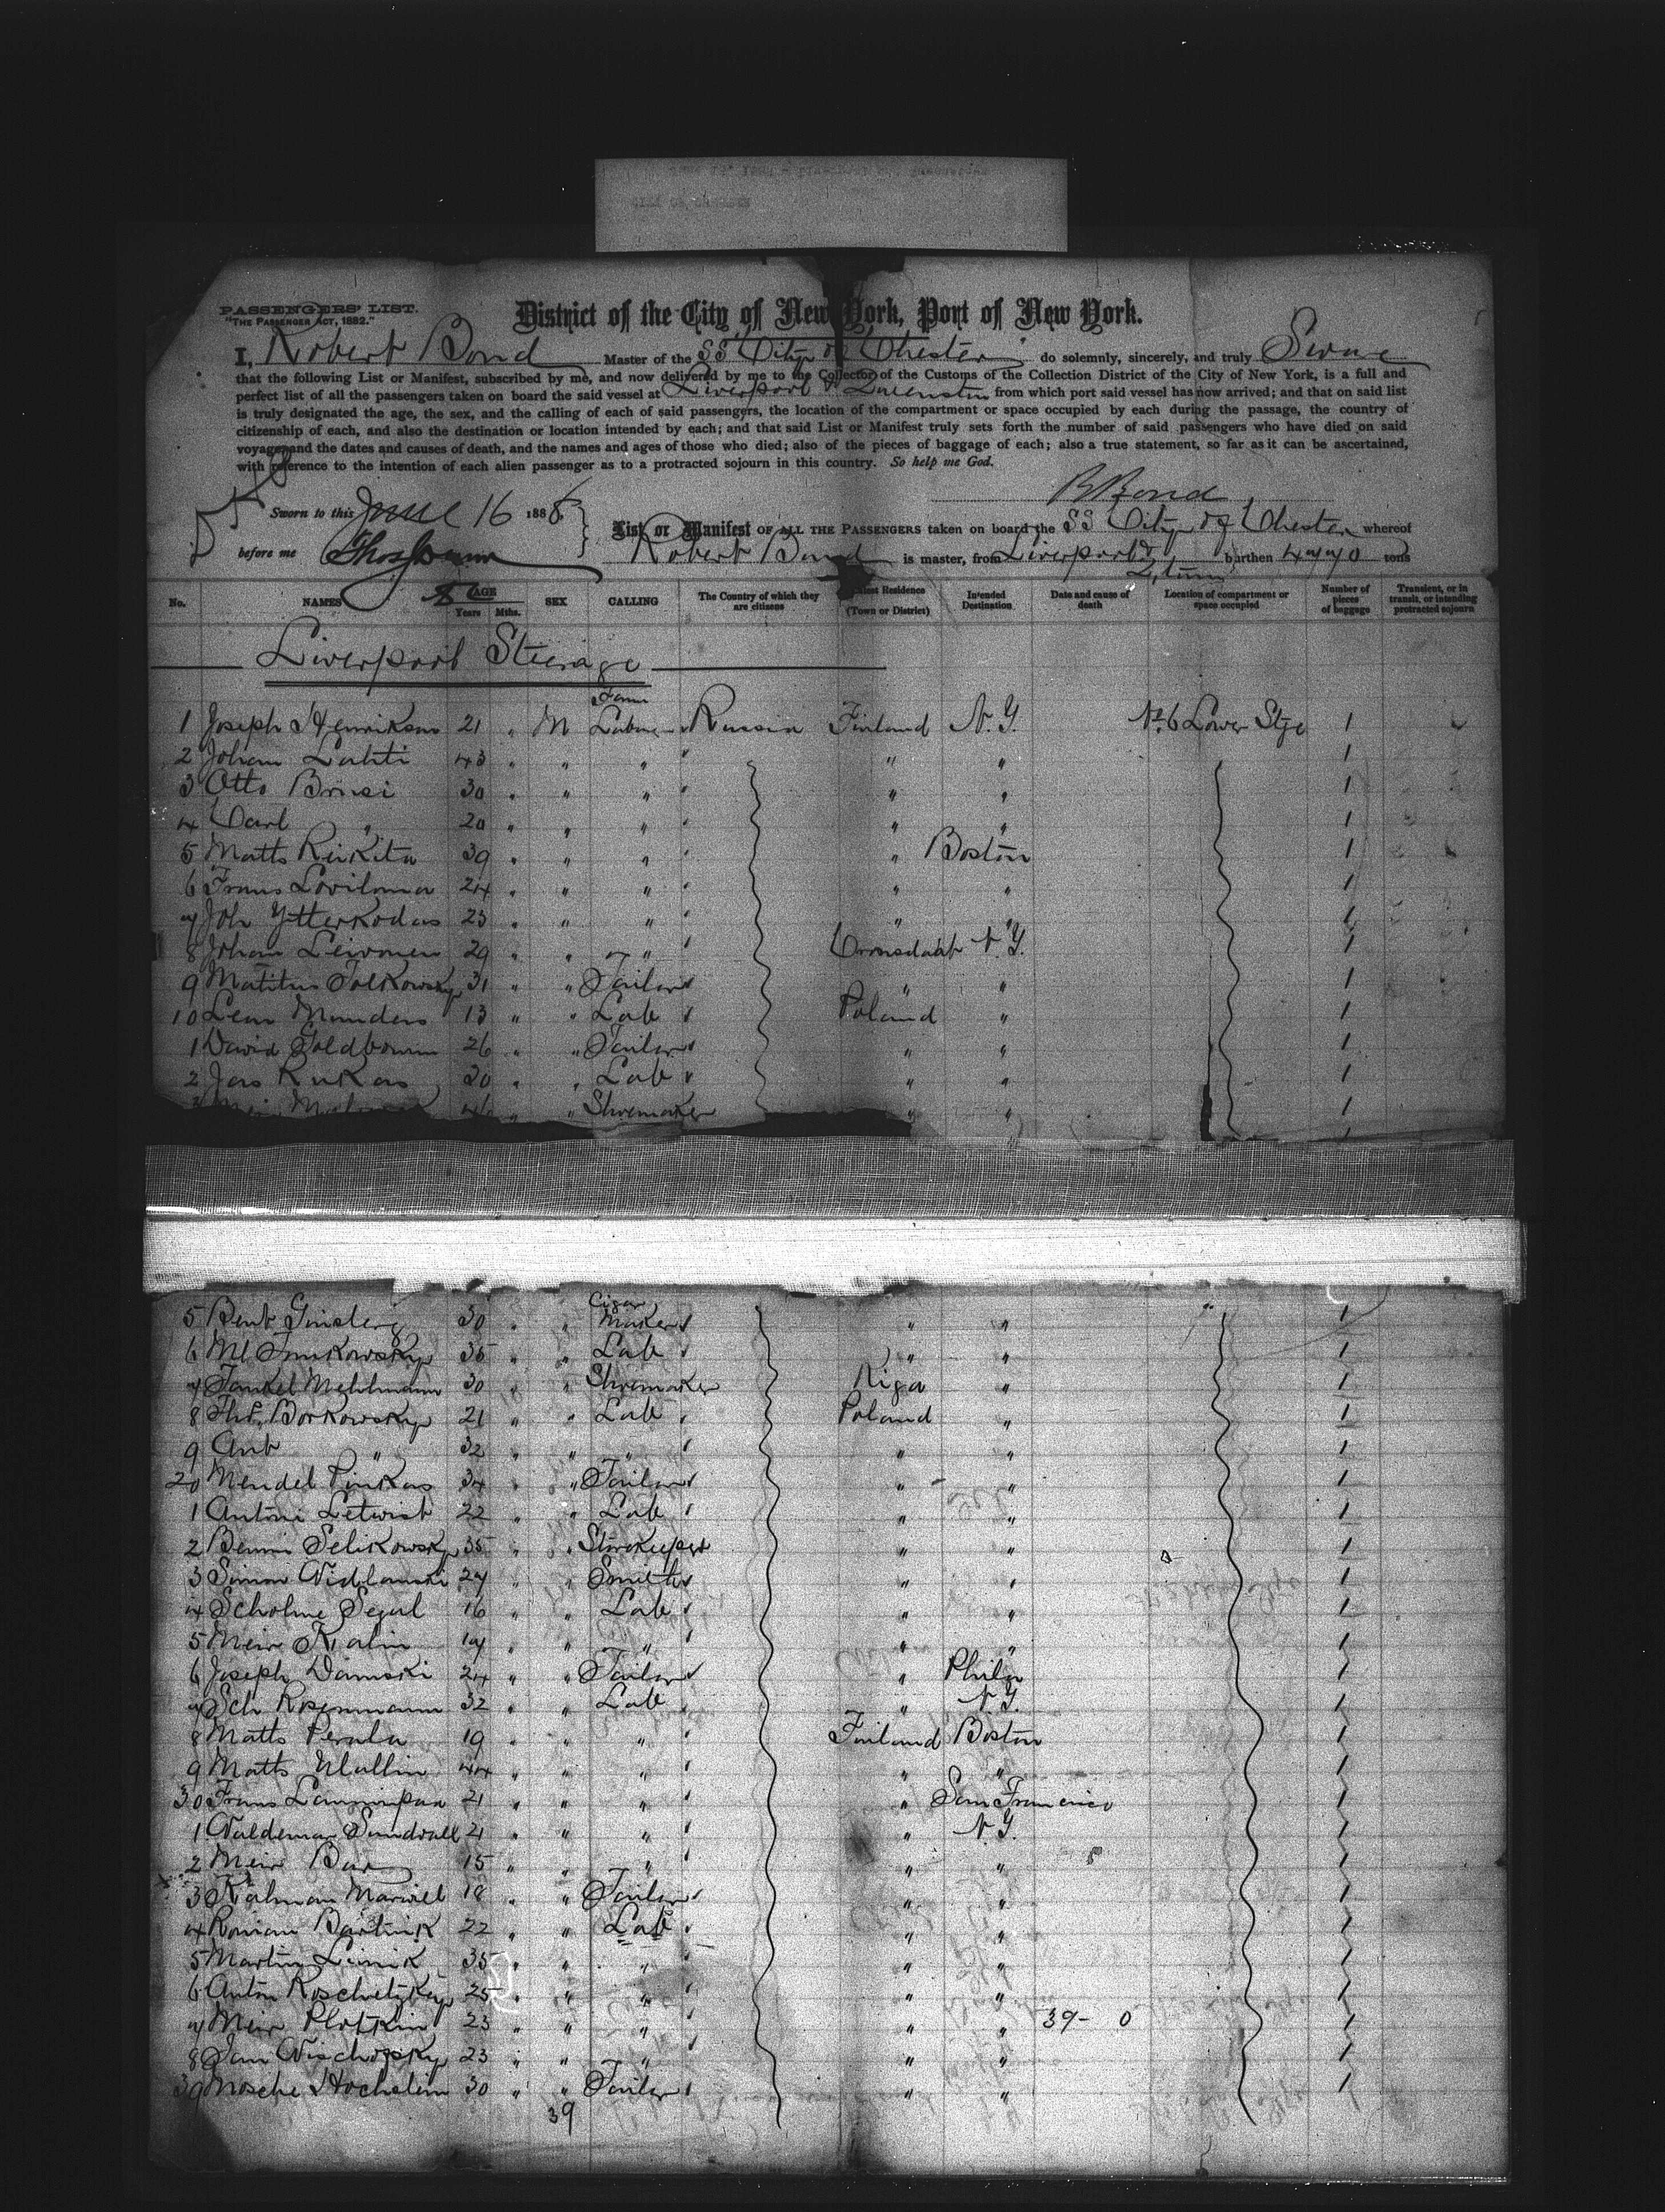 PASSENGERS' LIST.
"THE PASSENGER ACT, 1882."
District of the City of New York, Port of New York.
I, Robert Bond Master of the SS City of Chester do solemnly, sincerely, and truly Swear
that the following List or Manifest, subscribed by me, and now delivered by me to the Collector of the Customs of the Collection District of the City of New York, is a full and
perfect list of all the passengers taken on board the said vessel at Liverpool & from which port said vessel has now arrived; and that on said list
is truly designated the age, the sex, and the calling of each of said passengers, the location of the compartment or space occupied by each during the passage, the country of
citizenship of each, and also the destination or location intended by each; and that said List or Manifest truly sets forth the number of said passengers who have died on said
voyage and the dates and causes of death, and the names and ages of those who died; also of the pieces of baggage of each; also a true statement, so far as it can be ascertained,
with reference to the intention of each alien passenger as to a protracted sojourn in this country. So help me God.
R Bond
Sworn to this June 16 188
List or Manifest OF ALL THE PASSENGERS taken on board the SS City of Chester whereof
before me
Robert Bond is master, from Liverpool & burthen 4770 tons
No. NAMES AGE Years Mths. SEX CALLING The Country of which they are citizens Residence (Town or District) Intended Destination Date and cause of death Location of compartment or space occupied Number of pieces of baggage Transient, or in transit, or intending protracted sojourn
Liverpool Steerage
1 Joseph Henrikson 21 " M Farm Labour Russia Finland N.Y. No 6 Lower Stge 1
2 Johan Lahti 43 " " " " " " 1
3 Otto 30 " " " " " " 1
4 Carl " 20 " " " " " " 1
5 Matts 39 " " " " " Boston 1
6 Frans 24 " " " " " " 1
7 Joh Ytterkodas 23 " " " " " 1
8 Johan Leivonen 29 " " " " N.Y. 1
9 31 " " Tailor " " " 1
10 13 " " Lab " Poland " 1
1 David Goldbaum 26 " " Tailor " " " 1
2 20 " " Lab " " " 1
3 46 " " Shoemaker " " 1
5 Ginsberg 30 " " Cigar Maker " " " 1
6 35 " " Lab " " " 1
7 Jankel Mehlmann 30 " " Shoemaker Riga " 1
8 Borkowsky 21 " " Lab " Poland " 1
9 Ant " 32 " " " " " " 1
20 Mendel Pinkas 34 " " Tailor " " " 1
1 Antoni Letwist 22 " " Lab " " " 1
2 Benni Selikowsky 35 " " Storekeeper " " 1
3 Simon 27 " " Smith " " " 1
4 Scholme Segal 16 " " Lab " " " 1
5 Meir Kalin 17 " " " " " " 1
6 Joseph Damski 24 " " Tailor " " Phila 1
7 Sch Rosenmann 32 " " Lab " " N.Y. 1
8 Matts Perala 19 " " " " Finland Boston 1
9 Matts 44 " " " " " " 1
30 Frans 21 " " " " " San Francisco 1
1 Valdemar Sundvall 21 " " " " " N.Y. 1
2 Meir 15 " " " " " " 1
3 Kalman 18 " " Tailor " " " 1
4 Roman Bartnik 22 " " Lab " " " 1
5 Martin Linik 35 " " " " " " 1
6 Anton 25 " " " " " " 1
7 Meir Plotkin 23 " " " " " " 39 - 0 1
8 Jan 23 " " " " " " 1
39 Mosche 30 " " Tailor " " " 1
39